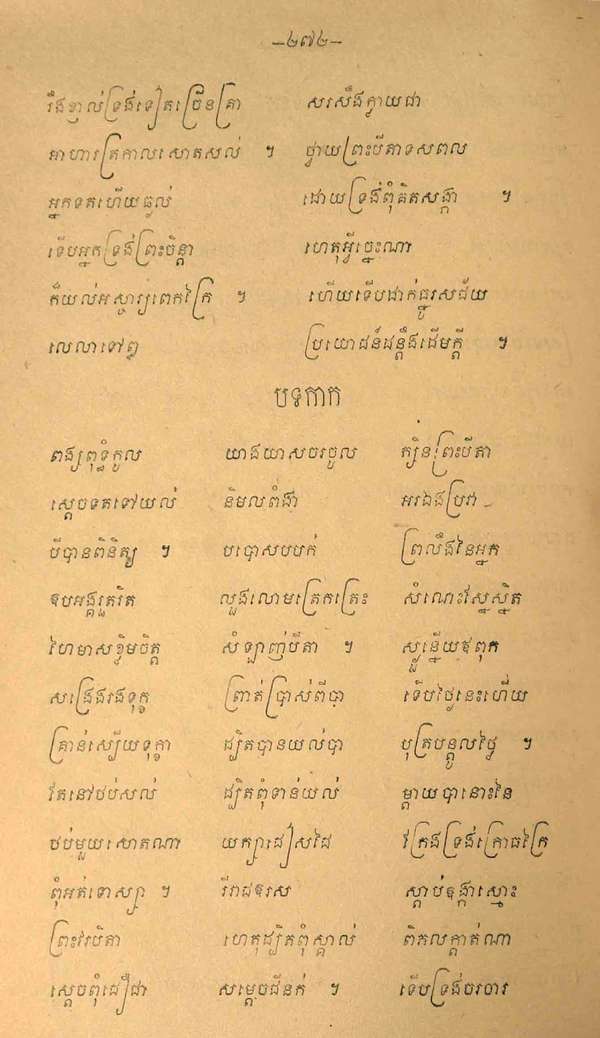 —២៧២—
រឹងខ្ញាល់ទ្រង់ទៀតច្រើនគ្រា សរសឹងក្វាយជា
អាហារត្រកាលសោតសល់ ។ ថ្វាយព្រះបីតាទសពល
អ្នកទតហើយធ្ងល់ ដោយទ្រង់ពុំគិតសង្កា ។
ទើបអ្នកទ្រង់ព្រះចិន្តា ហេតុអ្វីច្នេះណា
ក៏យល់អស្ចារ្យពេកក្រៃ ។ ហើយទើបដាក់ធ្នូរសជ័យ
លេលាទៅឰ ប្រយោជន៍ដន្តឹងដើមក្តី ។
បទកាក
ពង្សពុទ្ធំកូល យាងយាសចរចូល ក្បិនព្រះបីតា
ស្តេចទតទៅយល់ និមលពំងា អរឯងប្រវា
បីបានពិនិត្យ ។ បបោសបបក់ ព្រលឹងនៃអ្នក
ឱបអង្គរួតរិត លួងលោមត្រេកត្រេះ សំណេះស្នែស្និត
ហៃមាសខ្ទឹមចិត្ត សំឡាញ់បីតា ។ ស្ងួន្លើយឪពុក
សង្រែងរងទុក្ខ ព្រាត់ប្រាស់ពីបា ទើបថ្ងៃនេះហើយ
គ្រាន់ស្បើយទុក្ខា ដ្បិតបានយល់បា បុត្របន្តូលថ្ងៃ ។
តែនៅថប់សល់ ដ្បិតពុំទាន់យល់ ម្តាយបានោះនៃ
ថប់មួយសោតណា យក្សាជឿសដៃ វក្រែងទ្រង់ក្រោធក្រៃ
ពុំអត់ទោសា ។ រីរាជឱរស ស្តាប់ឱង្ការស្មោះ
ព្រះវរបិតា ហេតុដ្បិតពុំស្គាល់ ពិតលក្តាត់ណា
ស្តេចពុំជឿជា សម្តេចជីនក់ ។ ទើបទ្រង់ចរចារ